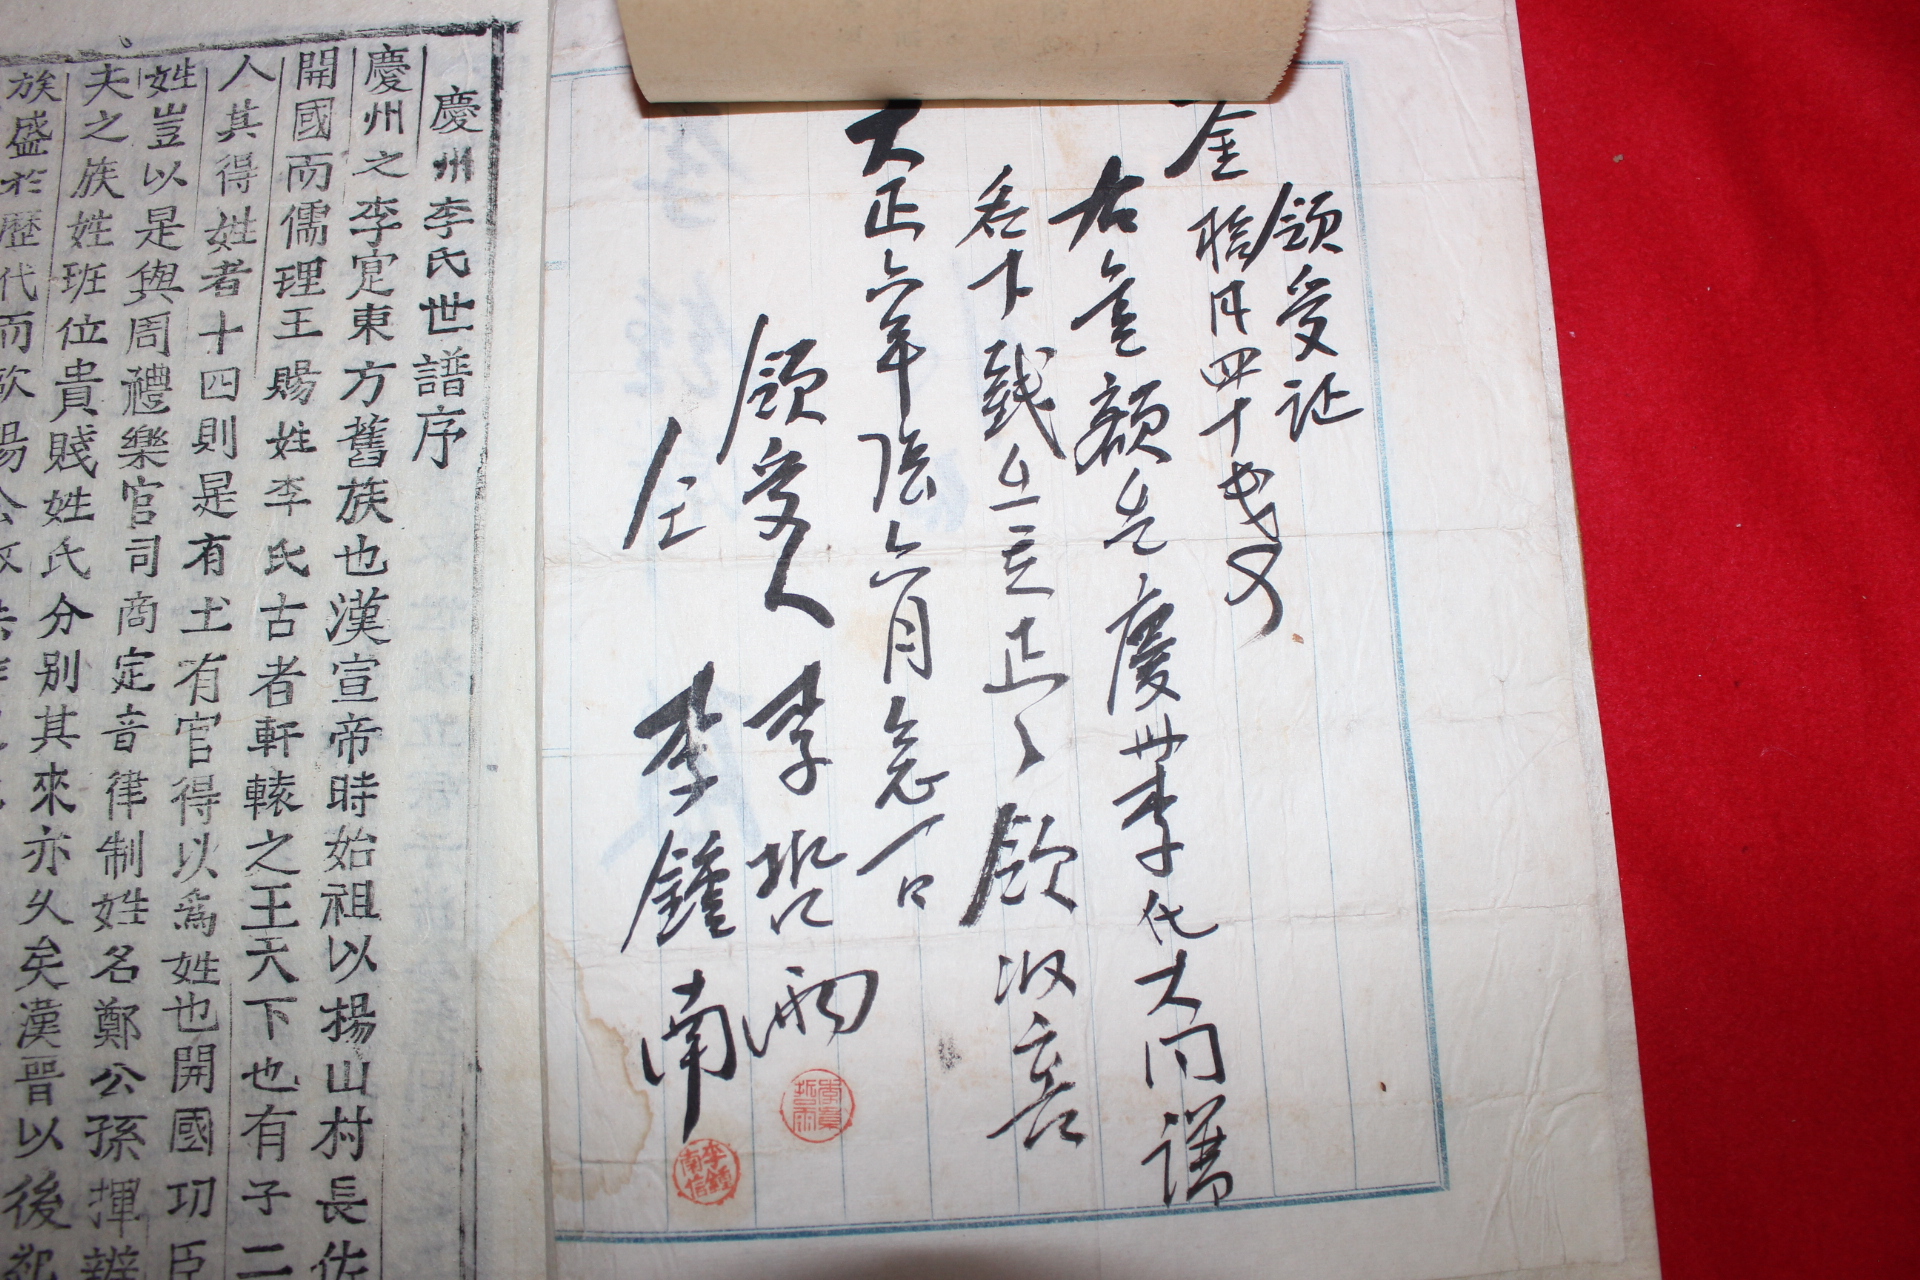 領受証
金拾円四十戋
右金額은慶州李氏大同譜
名下錢으로正히領收홈
大正六年陰六月念一日
領受人 李哲雨
仝 李鍾南
李鍾南信
慶州李氏世譜序
慶州之李寔東方舊族也漢宣帝時始祖以楊山村長佐
開國而儒理王賜姓李氏古者軒轅之王天下也有子二
人其得姓者十四則是有土有官得以爲姓也開國功臣
姓豈以是與周禮樂官司商定音律制姓名鄭公孫揮辨
夫之族姓班位貴賤姓氏分別其來亦久矣漢晉以後
族盛於歷代而歐陽公